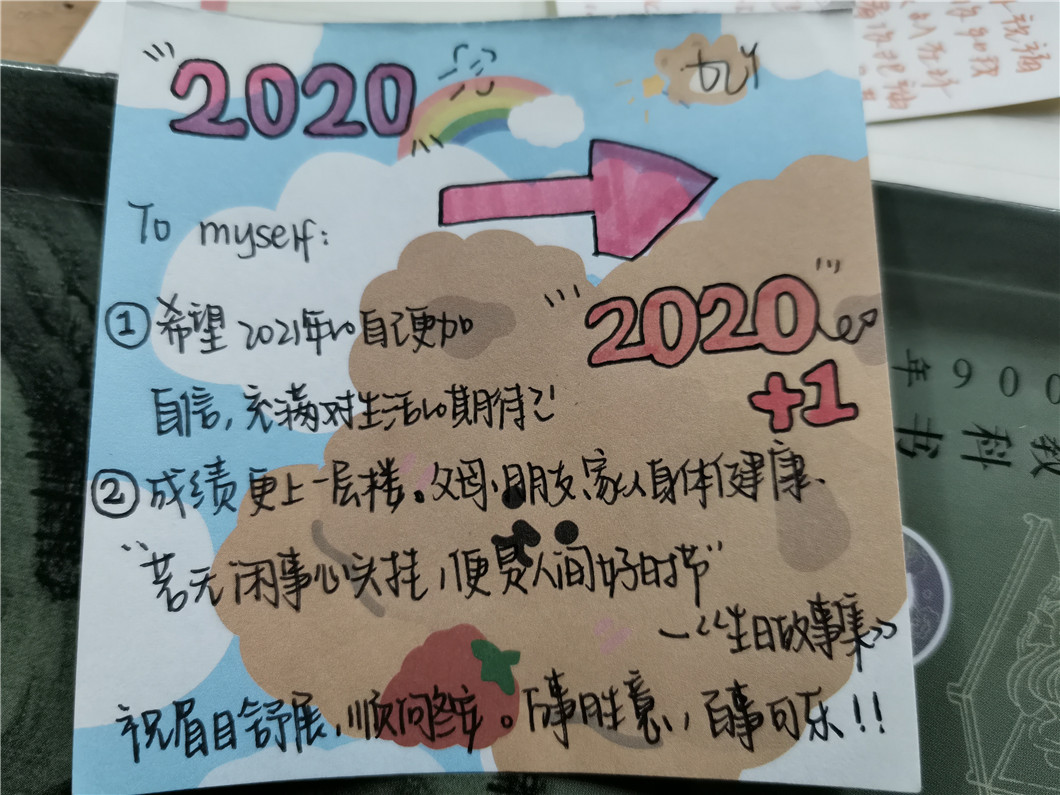 2020
To myself:
2020
+1
①希望2021年的自己更加
自信,充满对生活的期待!
②成绩更上一层楼。父母、朋友、家人身体健康、
"若无闲事心头挂,便是人间好时节"
—《生日故事集》
祝眉目舒展,顺问冬安。万事胜意,百事可乐!!
年 9 0 0
教科书